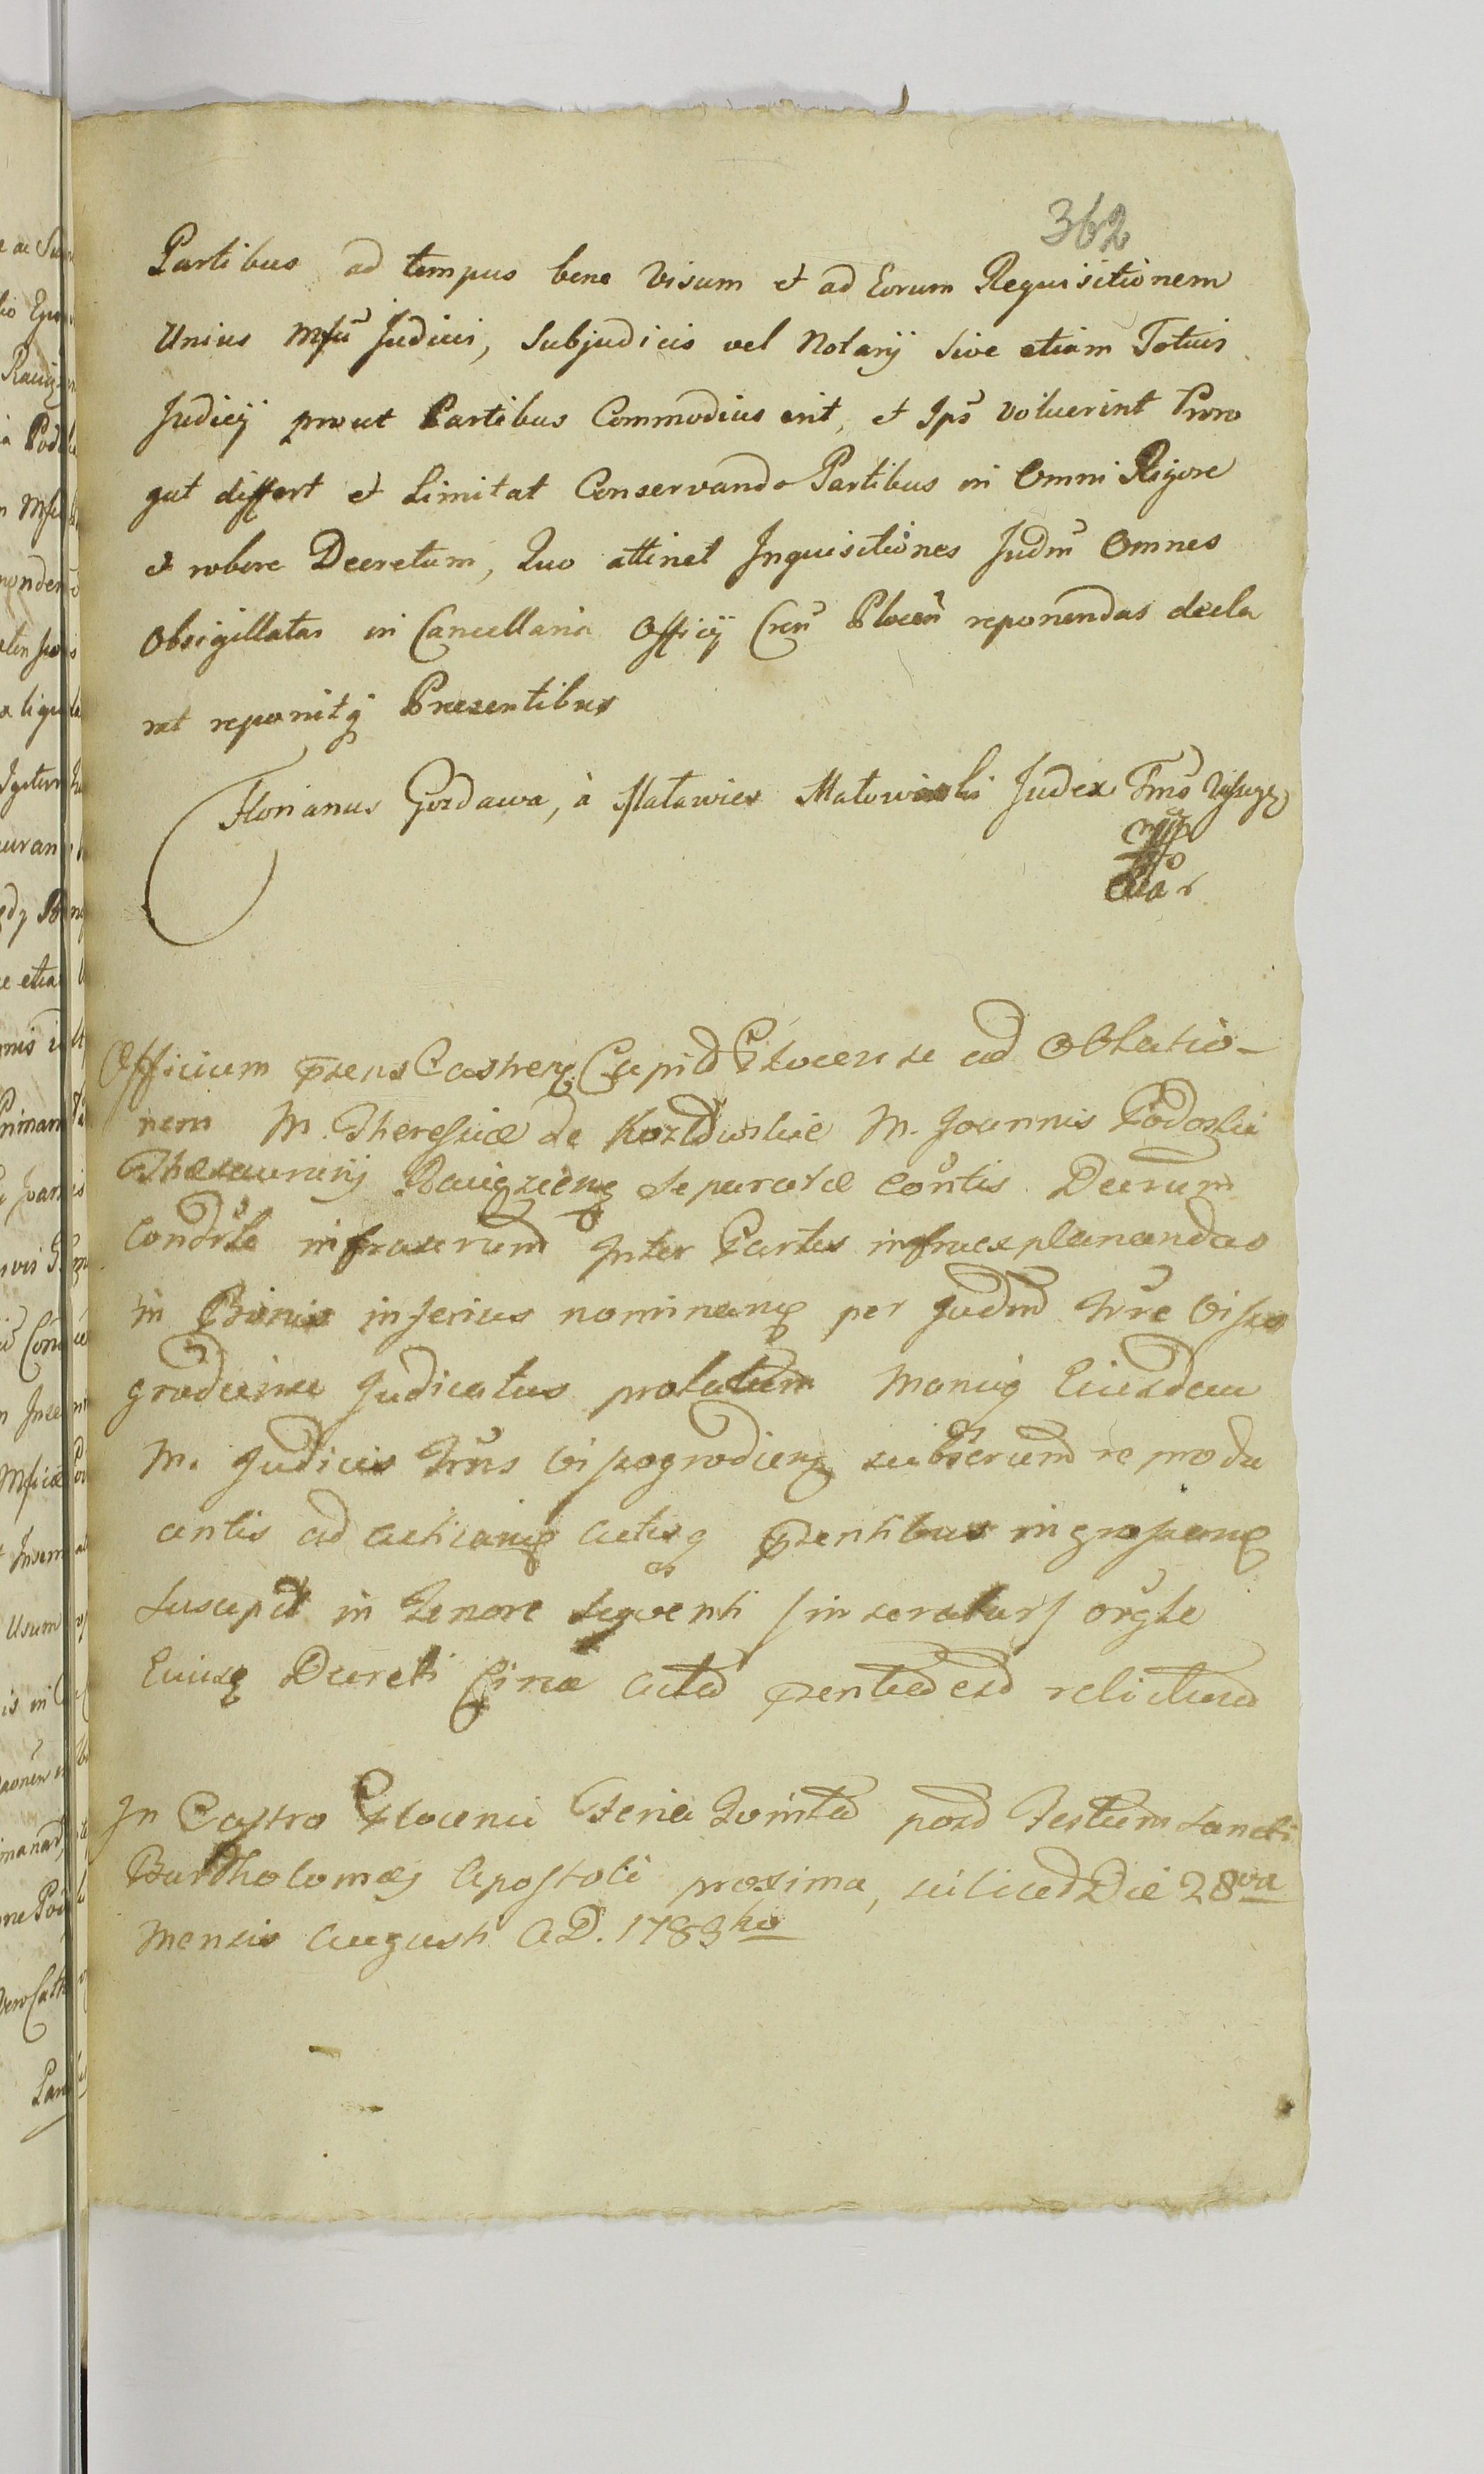 362
Partibus ad tempus bene Visum et ad Eorum Requisitionem
Unius Mfci Judicii, Subjudicis vel Notarÿ sive etiam Totius
Judicÿ prout Partibus Commodius erit, et Ips̃ Voluerint Proro
gat differt et Limitat Conservando Partibus in Omni Rigore
et robore Decretum, Quo attinet Inquisitiones Judm̃ Omnes
Obsigillatas in Cancellaria Officÿ Cren̄ Plocen̄ reponendas decla
rat reponitq Praesentibus
Florianus Gozdawa, à Matawies Matowieski Judex Trrs̃
Officium pr̄sens Castren Capit Plocense ad Oblatio-
nem M. Theresiae de Kozłowskie M. Joannis Podoski
Thesaurarÿ Raciązien separatae con̄tis Decrum
Condr̃le infrascrum Inter Partes infra explanandas
in Bonis inferius nominan per Judm Trr̃e Visso
grodiense Judicatus prolatum Manuq Eiusdem
M. Judicis Trr̃s Vissogrodien subscrum reprodu
centis ad actican actisq pr̄sentibus ingrossan
suscepit in Tenore sequenti /inseratur/ orgle
Eiusq Decreti Circa acta pr̄sentia est relictum
In Castro Plocensi Feria Quinta post Festum Sancti
Bartholomaei Apostoli proxima, scilicet Die 28va
Mensis Augusti A.D. 1783tio